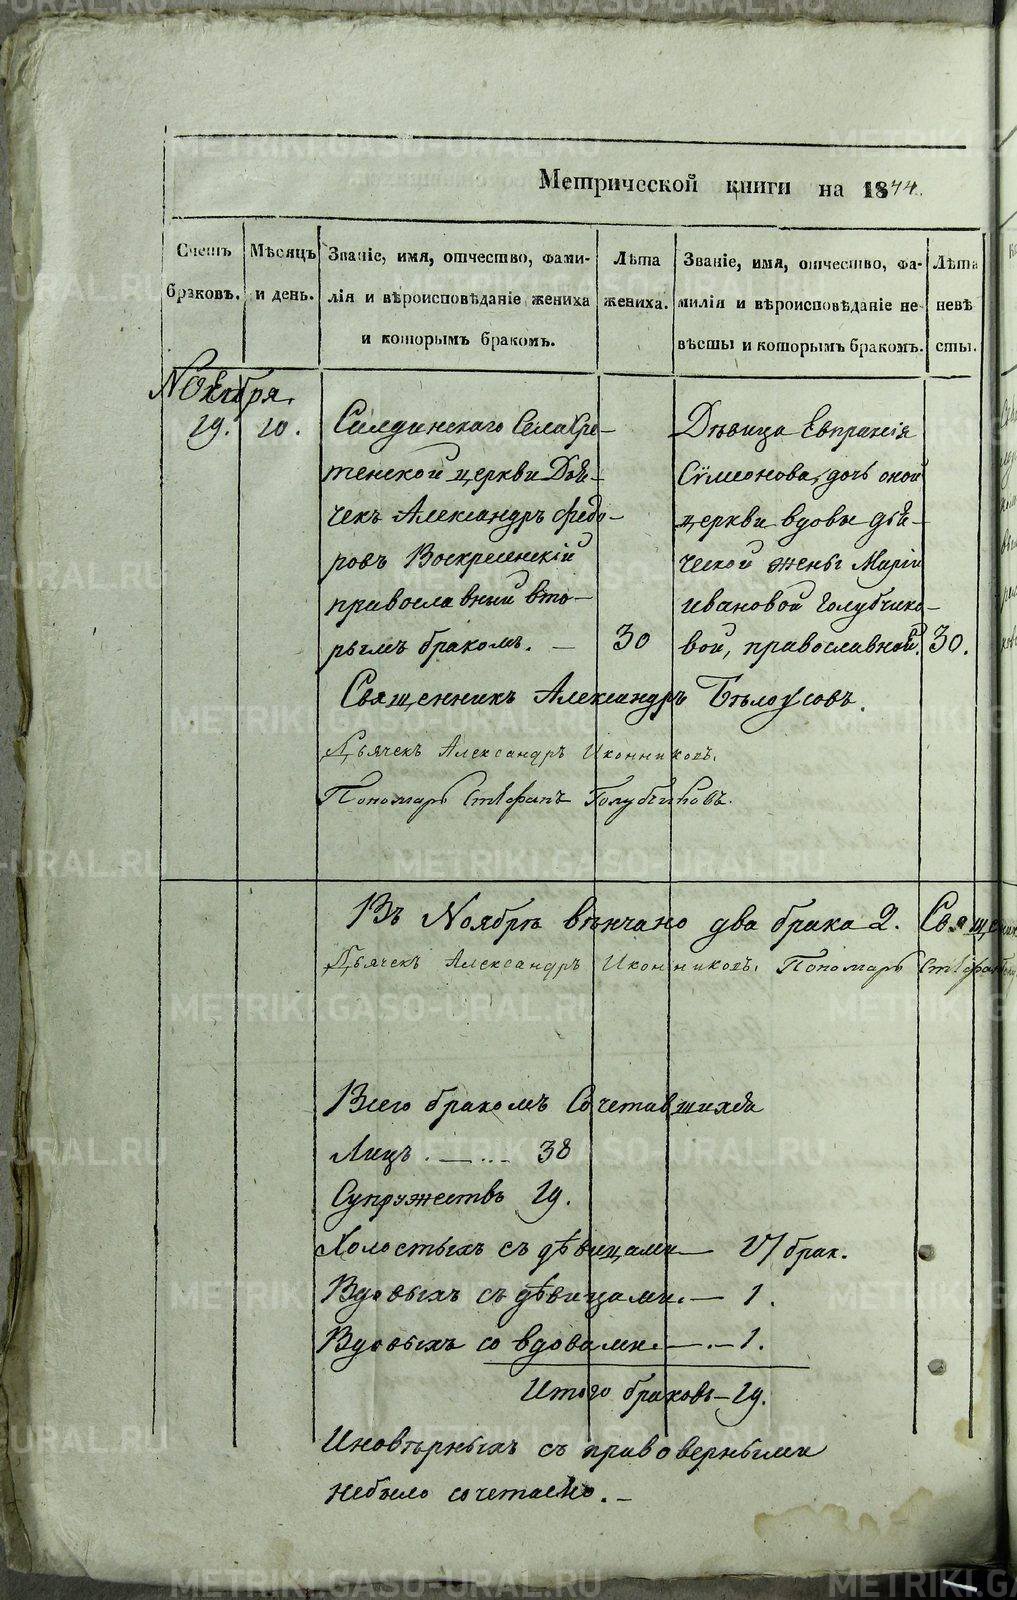 Метрической книги на 1844.
Счетъ браковъ.
Мѣсяцъ и день.
Званіе, имя, отчество, фами-
лія и вѣроисповѣданіе жениха
и которымъ бракомъ.
Лѣта жениха.
Званіе, имя, отчество, фа-
милія и вѣроисповѣданіе не-
вѣсты и которымъ бракомъ.
Лѣта невѣ
сты.
Ноября
19. 10.
Салдинскаго Села Сре-
тенской церкви Дья-
чекъ Александръ Федо-
ровъ Воскресенскій
православный вто-
рымъ бракомъ. — 30
Дѣвица Евпраксія
Сѵмеонова, дочь оной
церкви вдовы дья-
ческой жены Маріи
Ивановой Голубчико-
вой, православной. 30.
Священникъ Александръ Бѣлоусовъ.
Дьячекъ Александръ Иконниковъ.
Пономарь Стефанъ Голубчиковъ.
Въ Ноябрѣ вѣнчано два брака 2. Священник
Дьячекъ Александръ Иконниковъ. Пономарь Стефанъ
Всего бракомъ Сочетавшихся
Лицъ . — . . . 38
Супружествъ 19.
Холостыхъ съ дѣвицами — 17 брак.
Вдовыхъ съ дѣвицами. — 1.
Вдовыхъ со вдовами. — . — 1.
Итого браковъ — 19.
Иновѣрныхъ съ правоверными
небыло сочетаено. —
METRIKI.GASO-URAL.RU